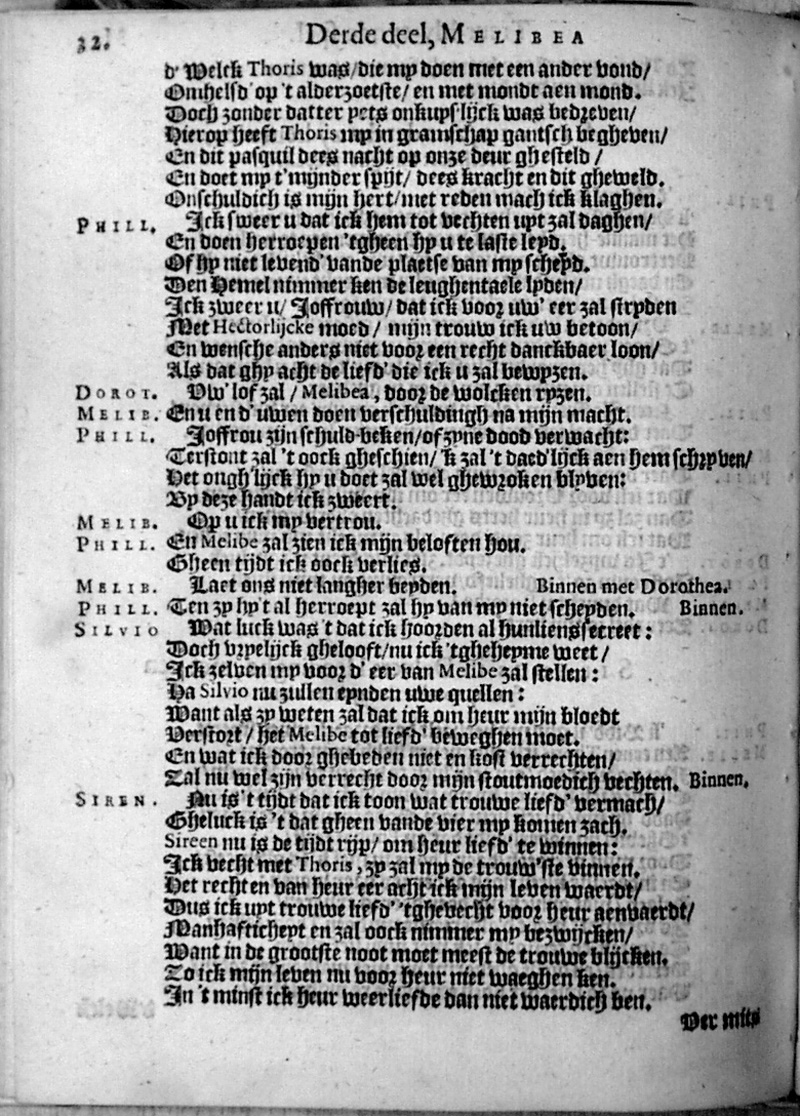 32. Derde deel, MELIBEA
d' Welck Thoris was/die my doen met een ander vond/
Omhelsd' op 't alderzoetste/ en met mondt aen mond.
Doch zonder datter yets onkuys-lijck was bedreven/
Hierop heeft Thoris my in gramschap gantsch begheven/
En dit pasquil dees nacht op onze deur ghesteld/
En doet my t'mijnder spijt/ dees kracht en dit gheweld.
Onschuldich is mijn hert/met reden mach ick klaghen.
PHILL. Ick sweer u dat ick hem tot vechten uyt zal daghen/
En doen herroepen 'tgheen hy u te laste leyd.
Of hy niet levend' vande plaetse van my scheyd.
Den Hemel nimmer ken de leughentaele lyden/
Ick zweer u/ Joffrouw/ dat ick voor uw' eer zal stryden
Met Hectorlijcke moed/ mijn trouw ick uw betoon/
En wensche anders niet voor een recht danckbaer loon/
Als dat ghy acht de liefd' die ick u zal bewyzen.
DOROT. Uw' lof zal/ Melibea, door de wolcken ryzen.
MELIB. En u en d' uwen doen verschuldingh na mijn macht.
PHILL. Joffrou zijn schuld-beken/of zyne dood verwacht:
Terstont zal 't oock gheschien/ 'k zal 't daed'lijck aen hem schryven/
Het ongh'lijck hy u doet zal wel ghewroken blyven:
By deze handt ick zweert.
MELIB. Op u ick my vertrou.
PHILL. En Melibe zal zien ick mijn beloften hou.
Gheen tijdt ick oock verlies.
MELIB. Laet ons niet langher beyden. Binnen met Dorothea.
PHILL. Ten zy hy't al herroept zal hy van my niet scheyden. Binnen.
SILVIO Wat luck was 't dat ick hoorden al hunlien secreet:
Doch vryelijck ghelooft/nu ick 'tgheheyme weet/
Ick zelven my voor d' eer van Melibe zal stellen:
Ha Silvio nu zullen eynden uwe quellen:
Want als zy weten zal dat ick om heur mijn bloedt
Verstort/ het Melibe tot liefd' beweghen moet.
En wat ick door ghebeden niet en kost verrechten/
Zal nu wel zijn verrecht door mijn stoutmoedich vechten. Binnen.
SIREN. Nu is 't tijdt dat ick toon wat trouwe liefd' vermach/
Gheluck is 't dat gheen vande vier my komen zach.
Sireen nu is de tijdt ryp/ om heur liefd' te winnen:
Ick vecht met Thoris, zy zal my de trouw'ste vinnen.
Het rechten van heur eer acht ick mijn leven waerdt/
Dus ick uyt trouwe liefd' 'tghevecht voor heur aenvaerdt/
Manhafticheyt en zal oock nimmer my bezwijcken/
Want in de grootste noot moet meest de trouwe blijcken.
Zo ick mijn leven nu voor heur niet waeghen ken.
In 't minst ick heur weerliefde dan niet waerdich ben.
Ver mits